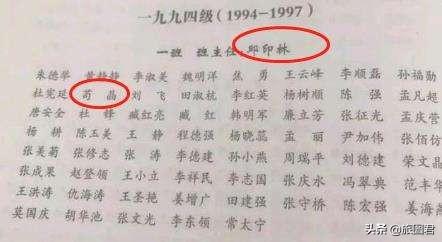 一九九四级(1994-1997)
一班 班主任:邱印林
朱德举 黄静静 李淑美 魏明洋 焦勇 王云峰 李顺磊 孙福勋
杜宪廷 苟晶 刘飞 田淑杭 李红英 杨树顺 陈强 孟凡超
唐安全 杜锋 臧红亮 臧红 韩明军 廉立芳 张征光 孟庆营
杨耕 陈玉美 王静 程德强 杨晓蕊 孟丽 尹加伟 张佰仿
张美菊 张修志 张涛 李德建 孙小燕 周瑞平 刘德建 荣文
张成果 赵登领 王小立 李祥民 李志国 张庆水 冯翠典 范丰
王洪涛 仇海涛 王圣艳 姜增广 田建强 张守桥 陈宏强 姜
莫国庆 胡华池 张文光 李东领 常太宁
头条 @旅图君